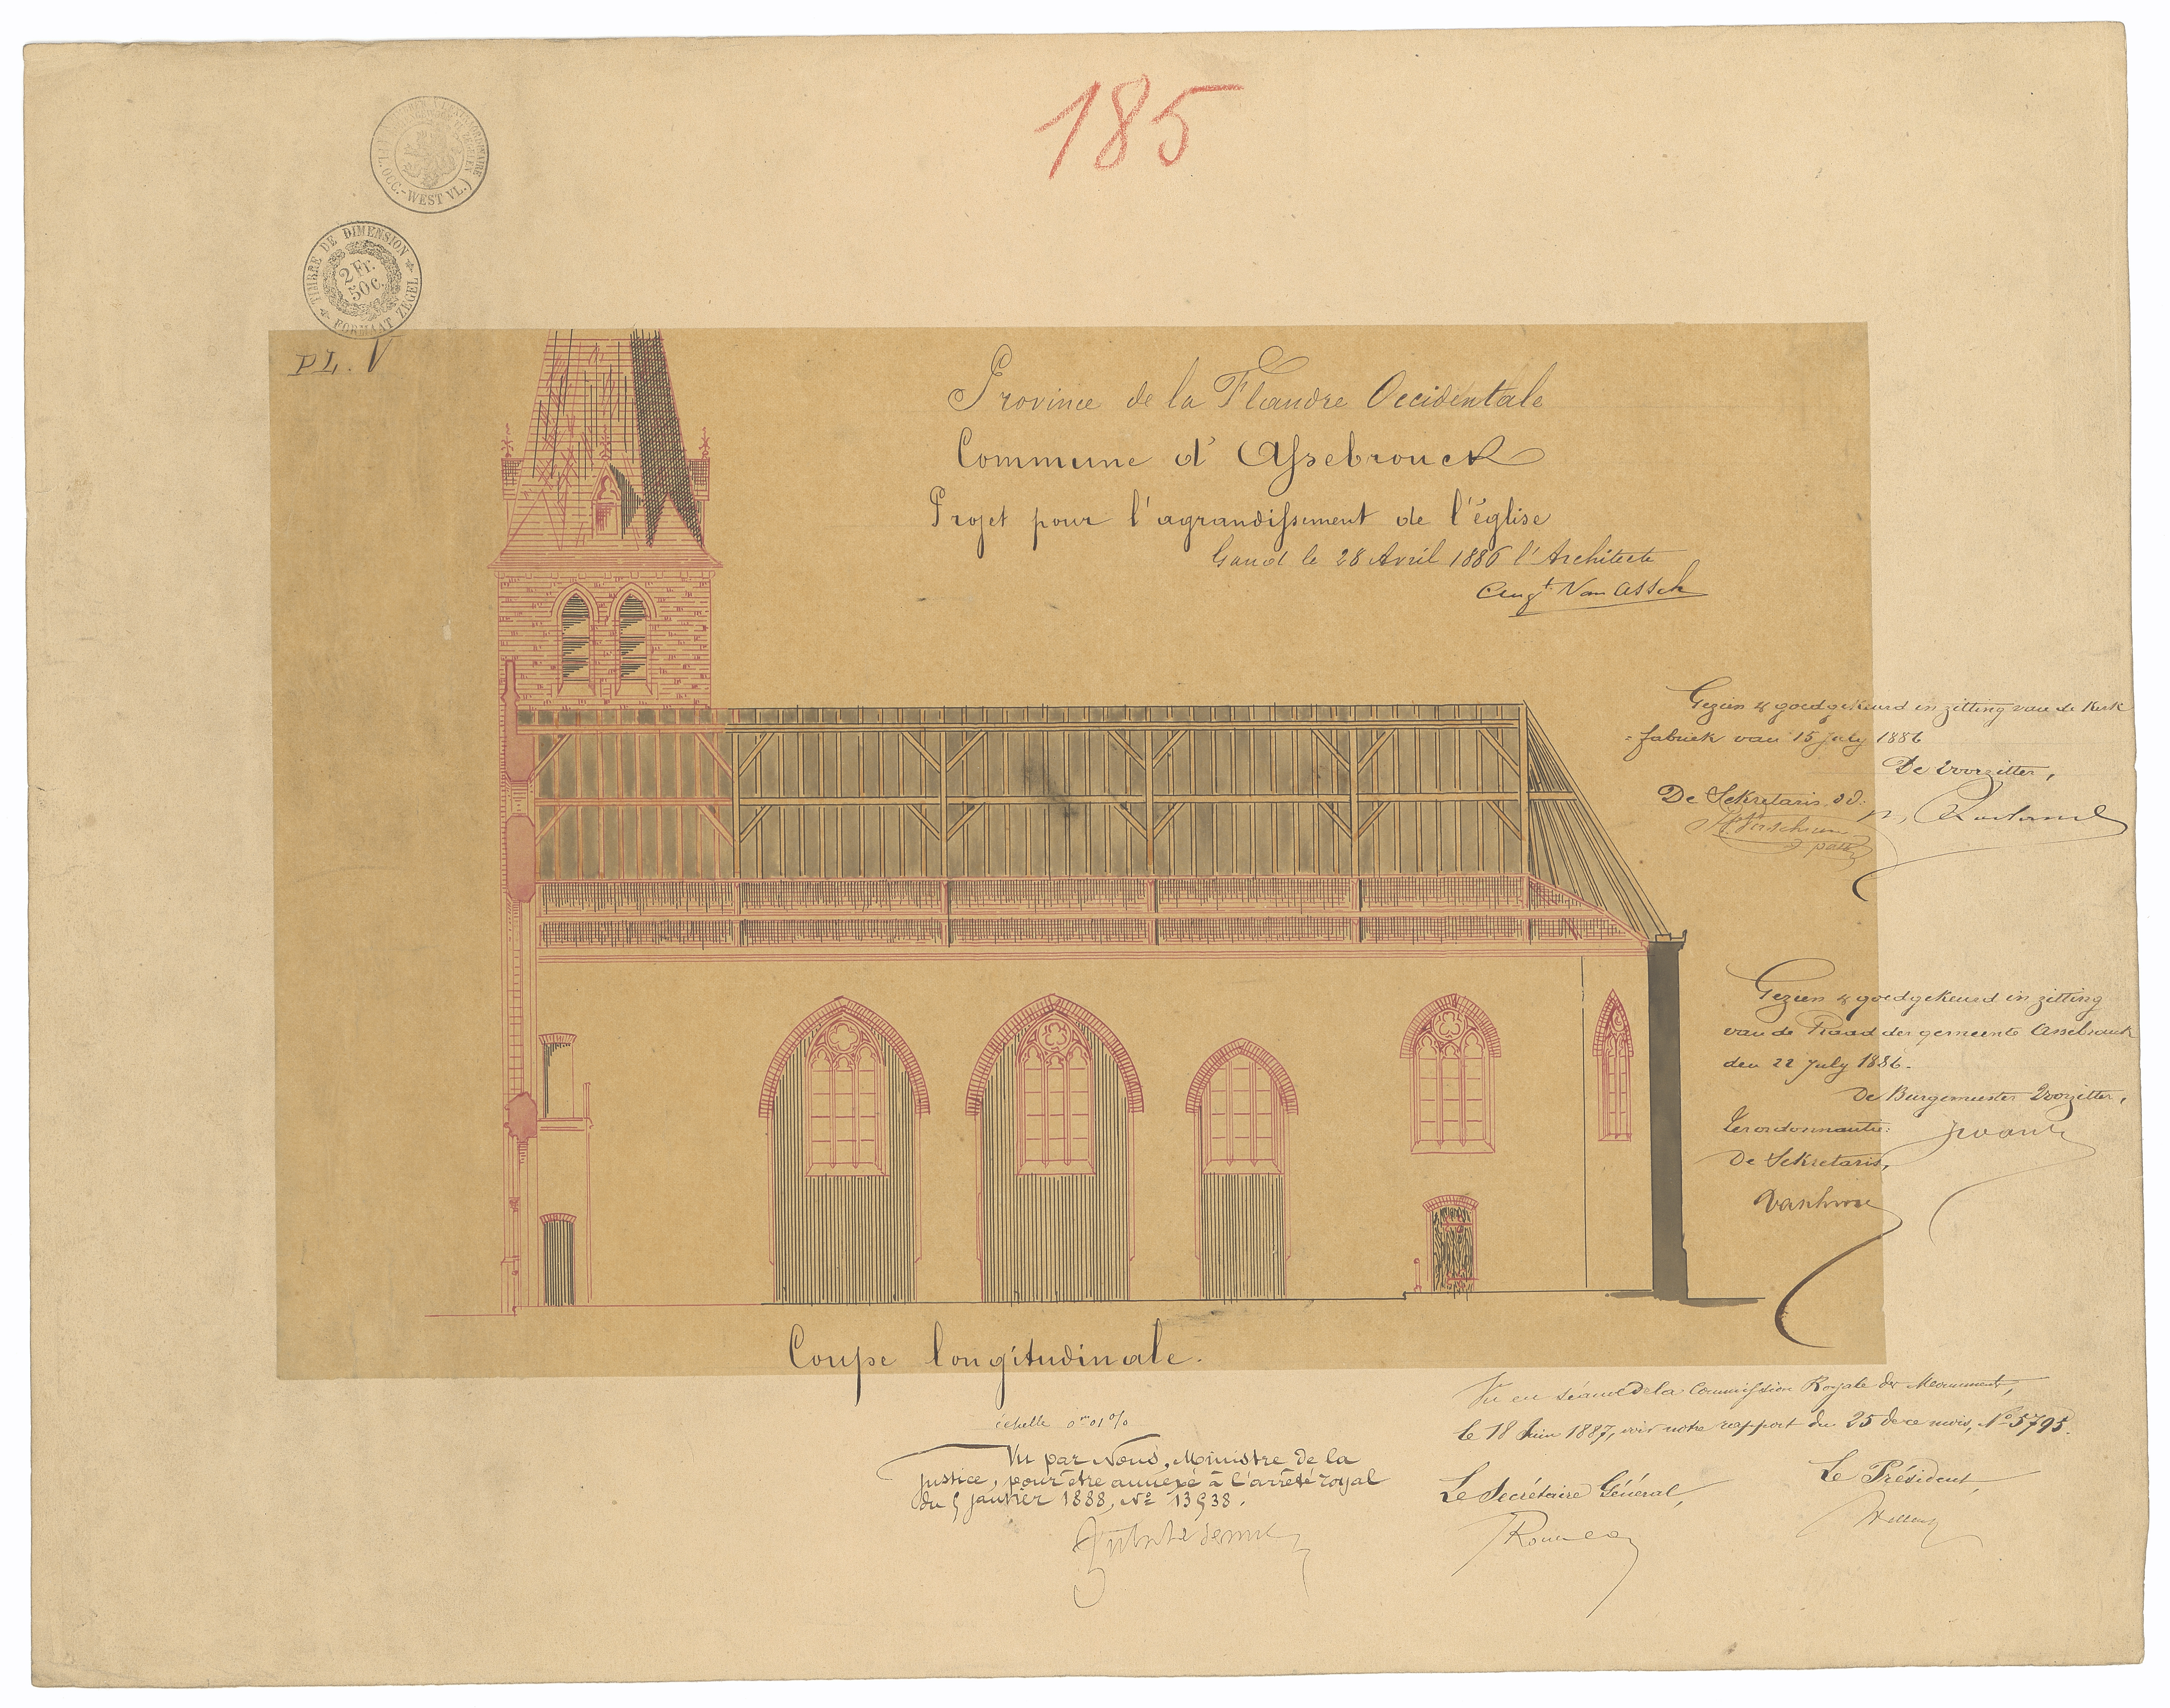 185
(FL. OCC.-WEST VL.)
TIMBRE DE DIMENSION
2 Fr.
50 c.
FORMAAT ZEGEL
PL. V
Province de la Flandre Occidentale
Commune d'Assebrouck
Projet pour l'agrandissement de l'église
Gand le 28 Avril 1886 l'Architecte
Augt. Van Assche
Gezien & goedgekeurd in zitting van de Kerk
=fabriek van 15 july 1886
De Voorzitter,
De Sekretaris,
Gezien & goedgekeurd in zitting
van de Raad der gemeente Assebrouck
den 22 July 1886.
De Burgemeester Voorzitter,
Ter ordonnantie:
De Sekretaris,
Coupe longitudinale.
échelle 0m01%
Vu par Nous, Ministre de la
Justice, pour être annexé à l'arrêté royal
du 5 janvier 1888, No 13938.
Vu en séance de la Commission Royale des Monuments,
le 18 Juin 1887, voir notre rapport du 25 de ce mois, No 5795.
Le Secrétaire Général,
Le Président,